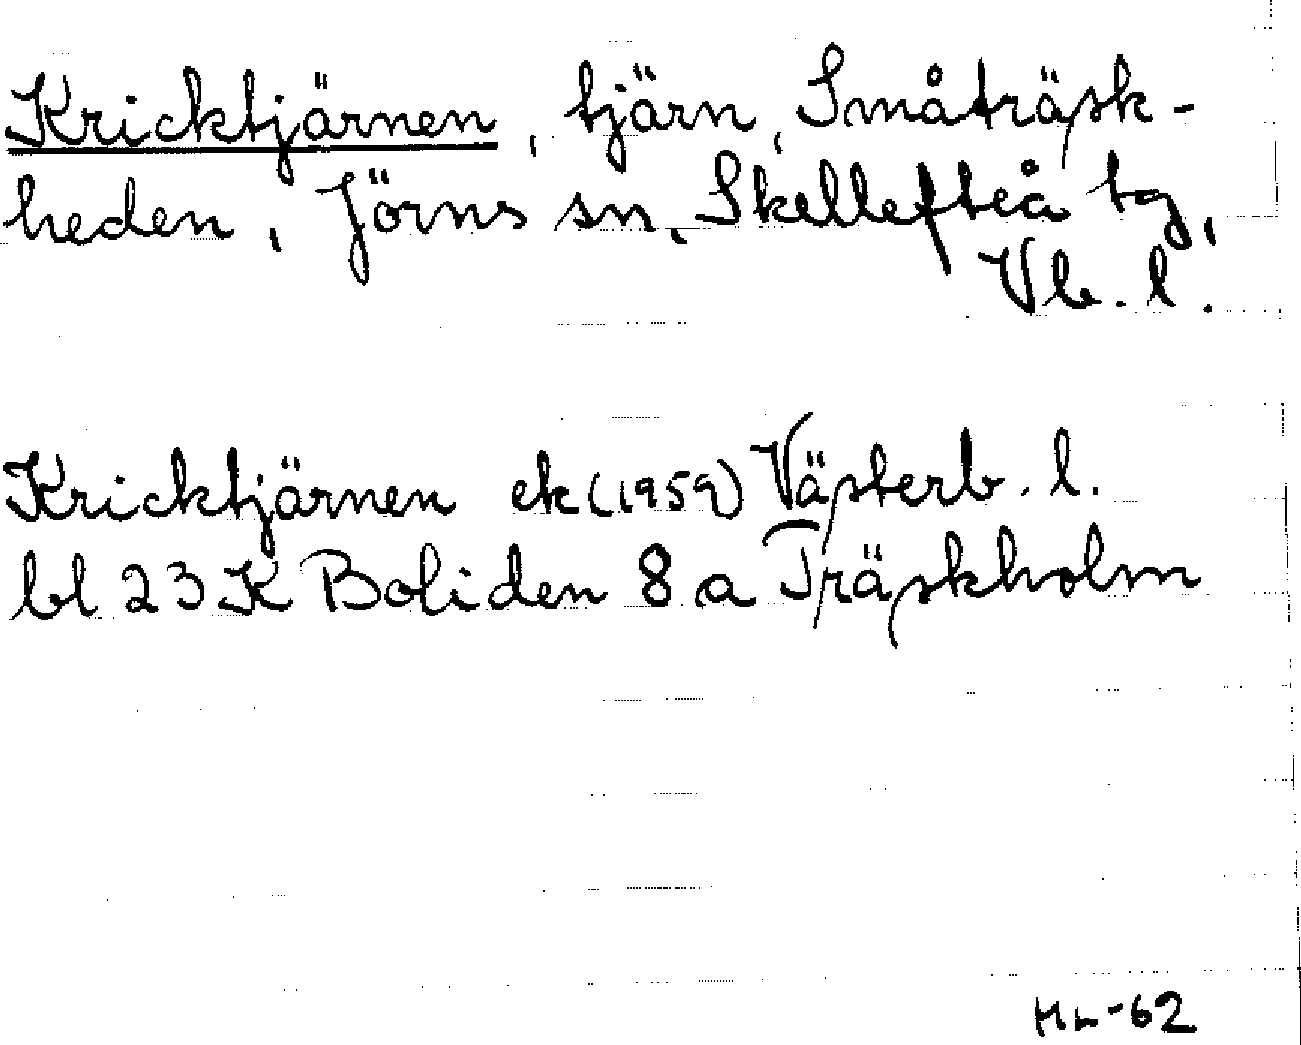 Kricktjärnen, tjärn, Småträsk-
heden, Jörns sn, Skellefteå tg,
Vb. l.
Kricktjärnen ek (1959) Västerb. l.
bl 23 K Boliden 8 a Träskholm
HL-62